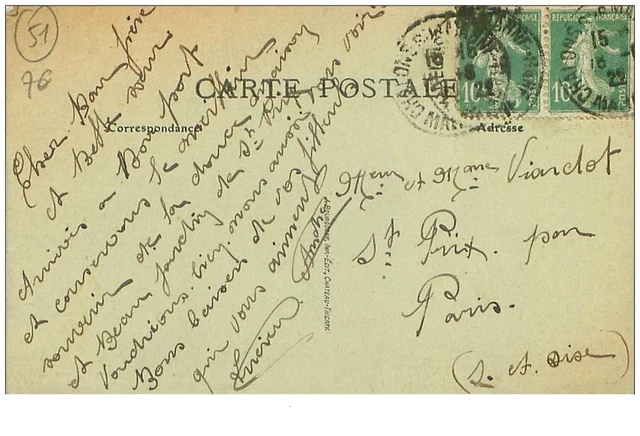 51
76
CARTE POSTALE
Correspondance
Adresse
RÉPUBLIQUE FRANÇAISE
POSTES
10
10
CHALONS S MARNE
MARNE
15
22
Cher Beau frère
et Belle sœur
Arrivés à Bon port
et conservons le meilleur
souvenir de la douce maison
et Beau jardin de St Prix,
Voudrions bien nous aussi, vous voir
Bons baisers de vos filleuls
qui vous aiment
Lucien André
Mieur et Mme Viardot
St Prix par
Paris.
(S. et Oise)
IMP.-EDIT., CHATEAU-THIERRY